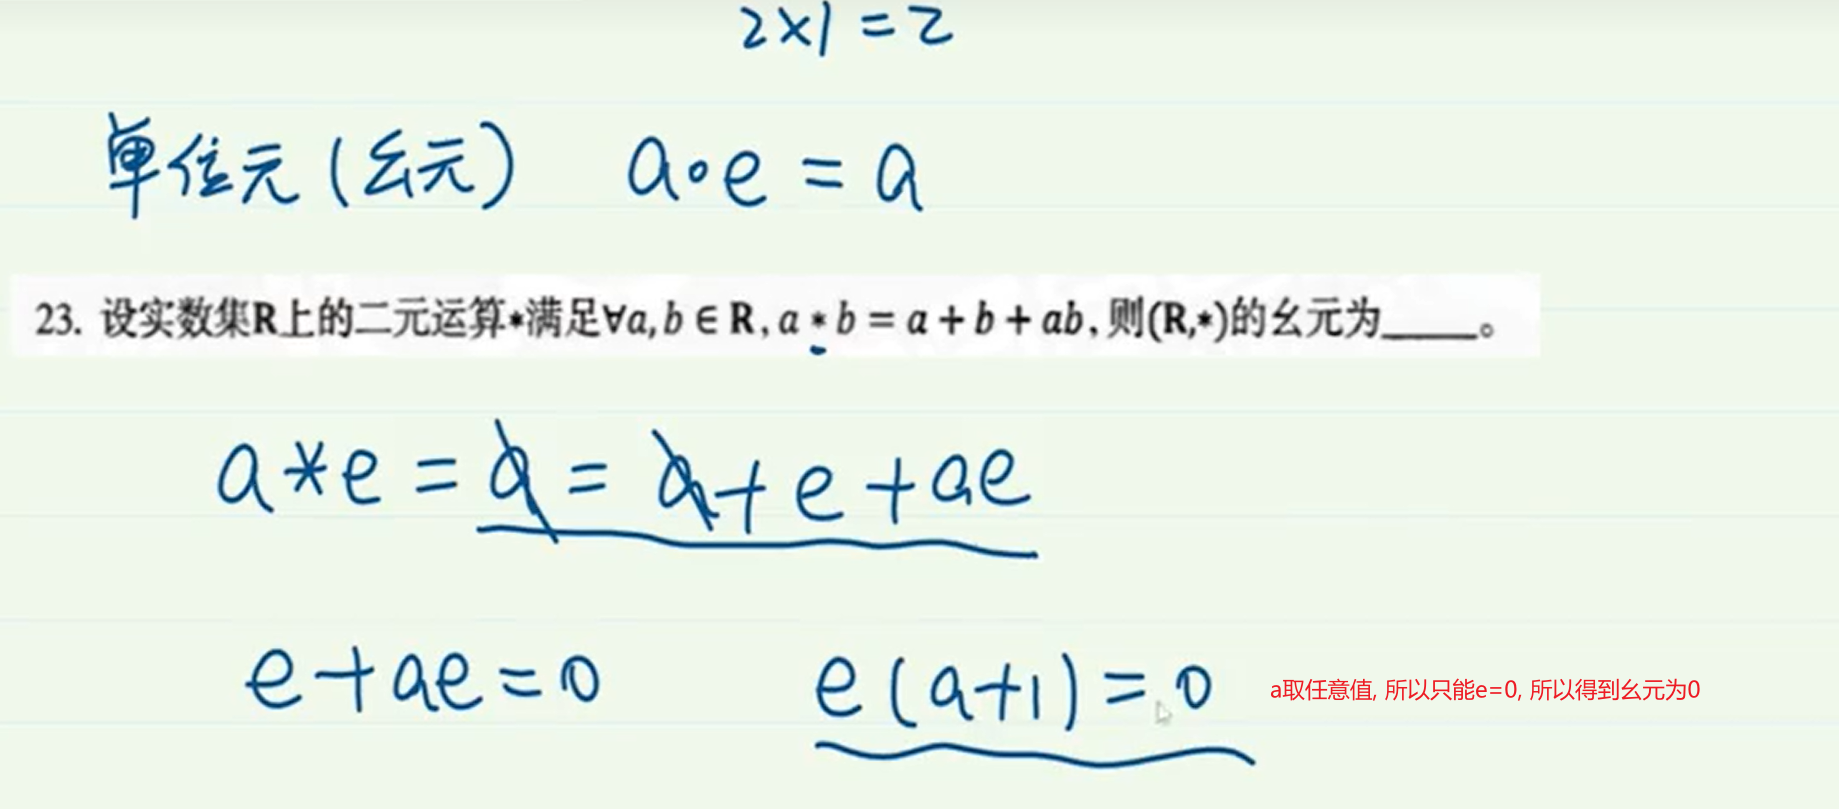 2×1=2
单位元(幺元) a∘e=a
23. 设实数集R上的二元运算*满足∀a,b∈R,a*b=a+b+ab,则(R,*)的幺元为_____。
a*e=a=a+e+ae
e+ae=0 e(a+1)=0 a取任意值, 所以只能e=0, 所以得到幺元为0